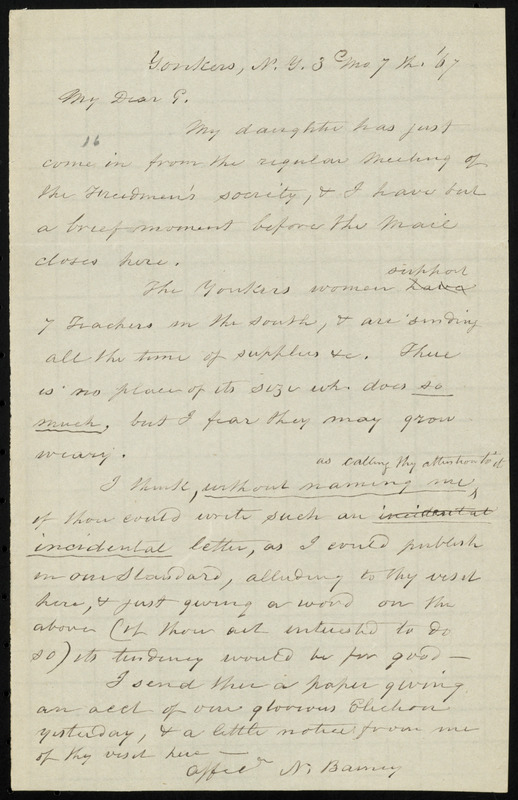 Yonkers, N. Y. 3c mo 7th. '67
My Dear G.
My daughter has just
16
come in from the regular meeting of
the Freedmen's society, & I have but
a brief moment before the Mail
closes here.
support
The Yonkers women have
7 Teachers in the South, & are sending
all the time of supplies &c. There
is no place of its size wh. does so
much, but I fear they may grow
weary.
as calling thy attention to it
I think, without naming me,
if thou could write such an incidental
incidental letter, as I could publish
in our Standard, alluding to thy visit
here, & just giving a word on the
above (if thou art interested to do
so) its tendency would be for good —
I send thee a paper giving
an acct of our glorious Election
yesterday, & a little notice from me
of thy visit here —
affecn N. Barney